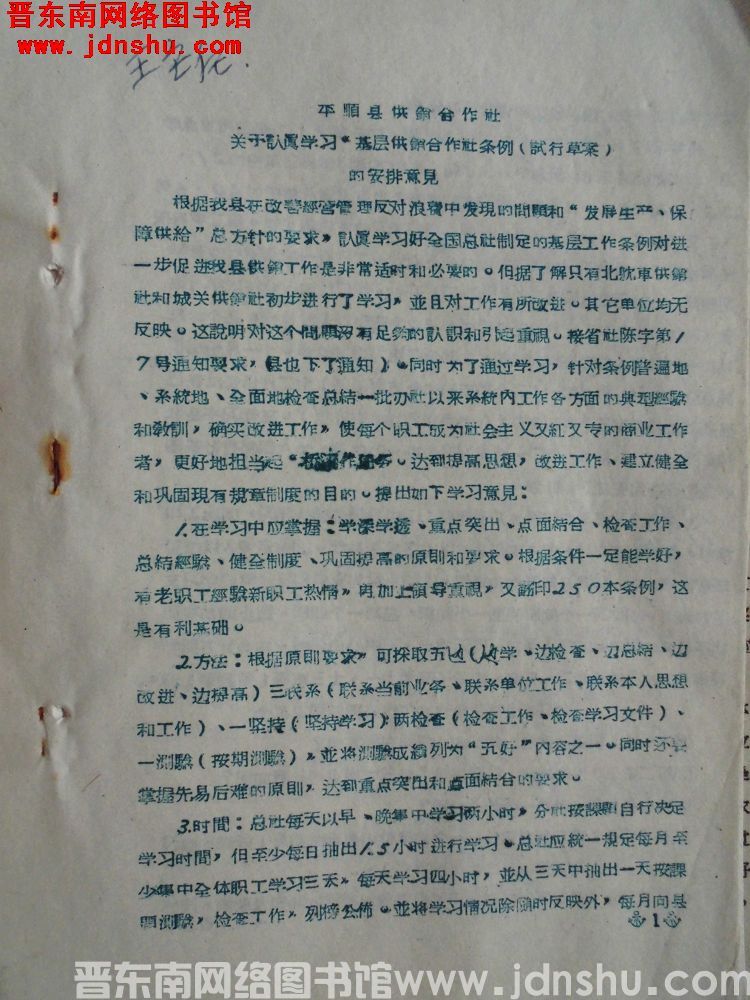 晋东南网络图书馆
www.jdnshu.com
平順县供銷合作社
关于認眞学习“基层供銷合作社条例（試行草案）
的安排意見
根据我县在改善經营管理反对浪費中发現的問題和“发展生产、保
障供給”总方針的要求，認眞学习好全国总社制定的基层工作条例对进
一步促进我县供銷工作是非常适时和必要的。但据了解只有北耽車供銷
社和城关供銷社初步进行了学习，並且对工作有所改进。其它单位均无
反映。这說明对这个問題沒有足够的認識和引起重視。按省社陈字第1
7号通知要求，（县也下了通知）。同时为了通过学习，針对条例普遍地
、系統地、全面地检查总結一批办社以来系統內工作各方面的典型經驗
和敎訓，确实改进工作，使每个职工成为社会主义又紅又专的商业工作
者，更好地担当起“ 。达到提高思想，改进工作、建立健全
和巩固現有規章制度的目的。提出如下学习意見：
1.在学习中应掌握：学深学透、重点突出、点面結合、检查工作、
总結經驗、健全制度、巩固提高的原則和要求。根据条件一定能学好，
有老职工經驗新职工热情，再加上領导重視，又翻印250本条例，这
是有利基础。
2.方法：根据原則要求，可採取五边（边学、边检查、边总結、边
改进、边提高）三联系（联系当前业务、联系单位工作、联系本人思想
和工作）、一坚持（坚持学习）两检查（检查工作、检查学习文件）、
一測驗（按期測驗），並将測驗成績列为“五好”内容之一。同时还要
掌握先易后难的原則，达到重点突出和点面結合的要求。
3.时間：总社每天以早、晚集中学习两小时，分社按課題自行决定
学习时間，但至少每日抽出1.5小时进行学习。总社应統一規定每月至
少集中全体职工学习三天，每天学习四小时，並从三天中抽出一天按課
題測驗，检查工作，列榜公佈。並将学习情况除随时反映外，每月向县
1
晋东南网络图书馆www.jdnshu.com